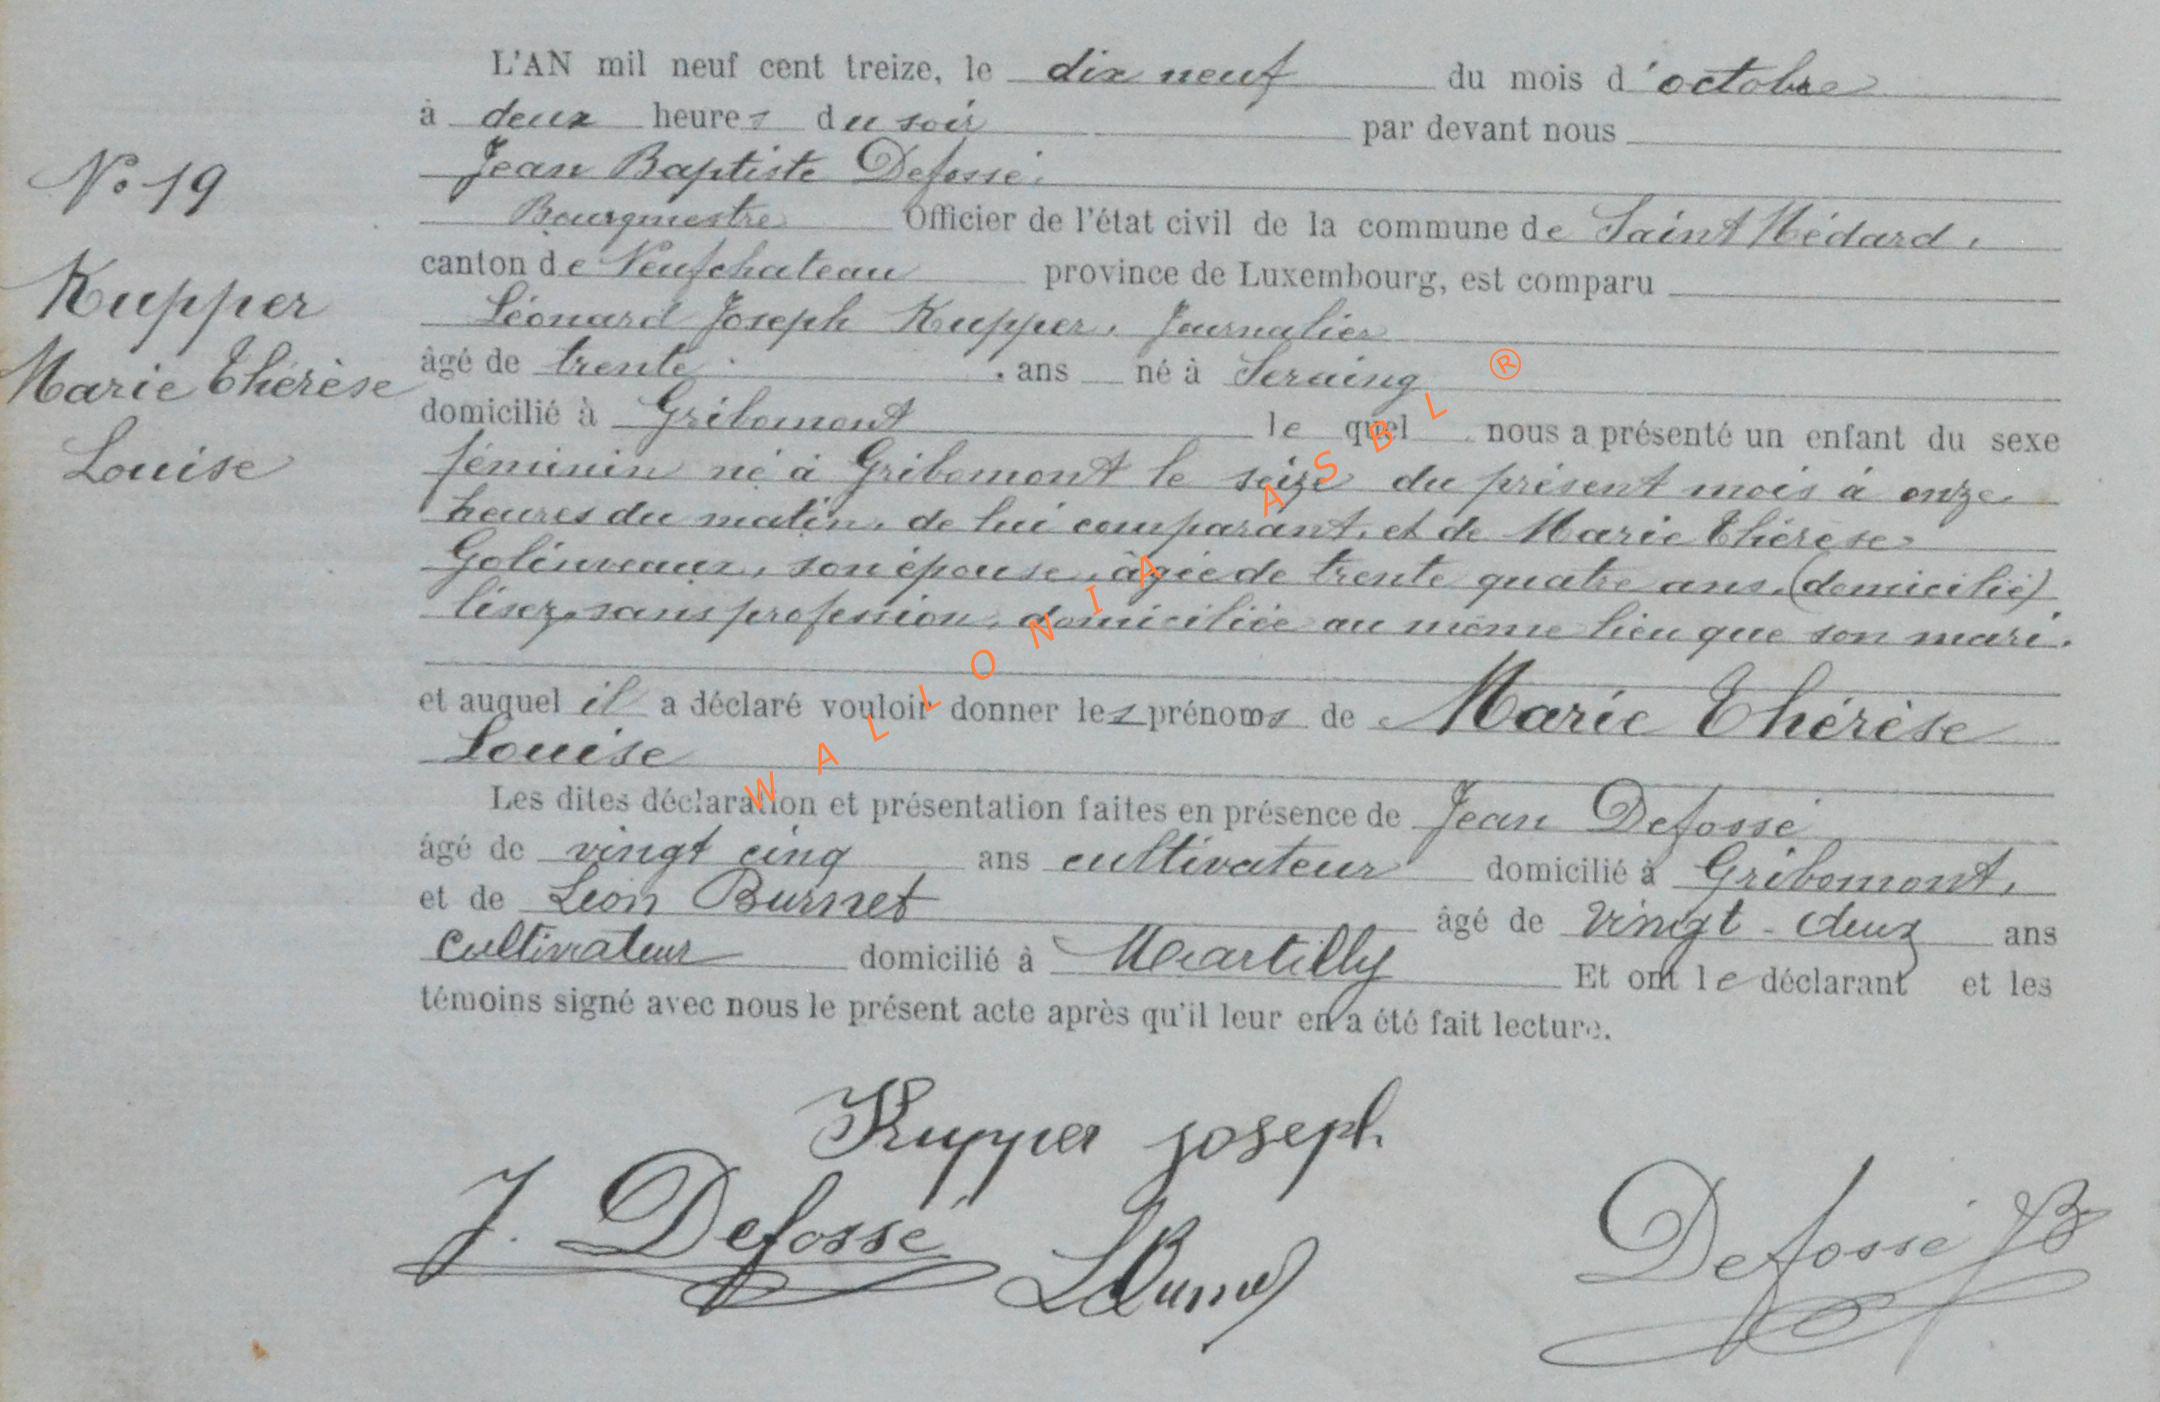 L'AN mil neuf cent treize, le dix neuf du mois d'octobre
à deux heures du soir par devant nous
Jean Baptiste Defossé.
Bourgmestre Officier de l'état civil de la commune de Saint Médard,
canton de Neufchateau province de Luxembourg, est comparu
Léonard Joseph Kupper, Journalier
âgé de trente ans né à Seraing
domicilié à Gribomont le quel nous a présenté un enfant du sexe
féminin né à Gribomont le seize du présent mois à onze
heures du matin, de lui comparant, et de Marie Thérèse
Golinveaux, son épouse, âgée de trente quatre ans, (domicilié)
lisez, sans profession, domiciliée au même lieu que son mari.
et auquel il a déclaré vouloir donner les prénoms de Marie Thérèse
Louise
Les dites déclaration et présentation faites en présence de Jean Defossé
âgé de vingt cinq ans cultivateur domicilié à Gribomont,
et de Léon Burnet âgé de vingt-deux ans
cultivateur domicilié à Martilly Et ont le déclarant et les
témoins signé avec nous le présent acte après qu'il leur en a été fait lecture.
N° 19
Kupper
Marie Thérèse
Louise
Kupper joseph
J. Defossé
LBurnet
Defossé JB
WALLONIA ASBL ®